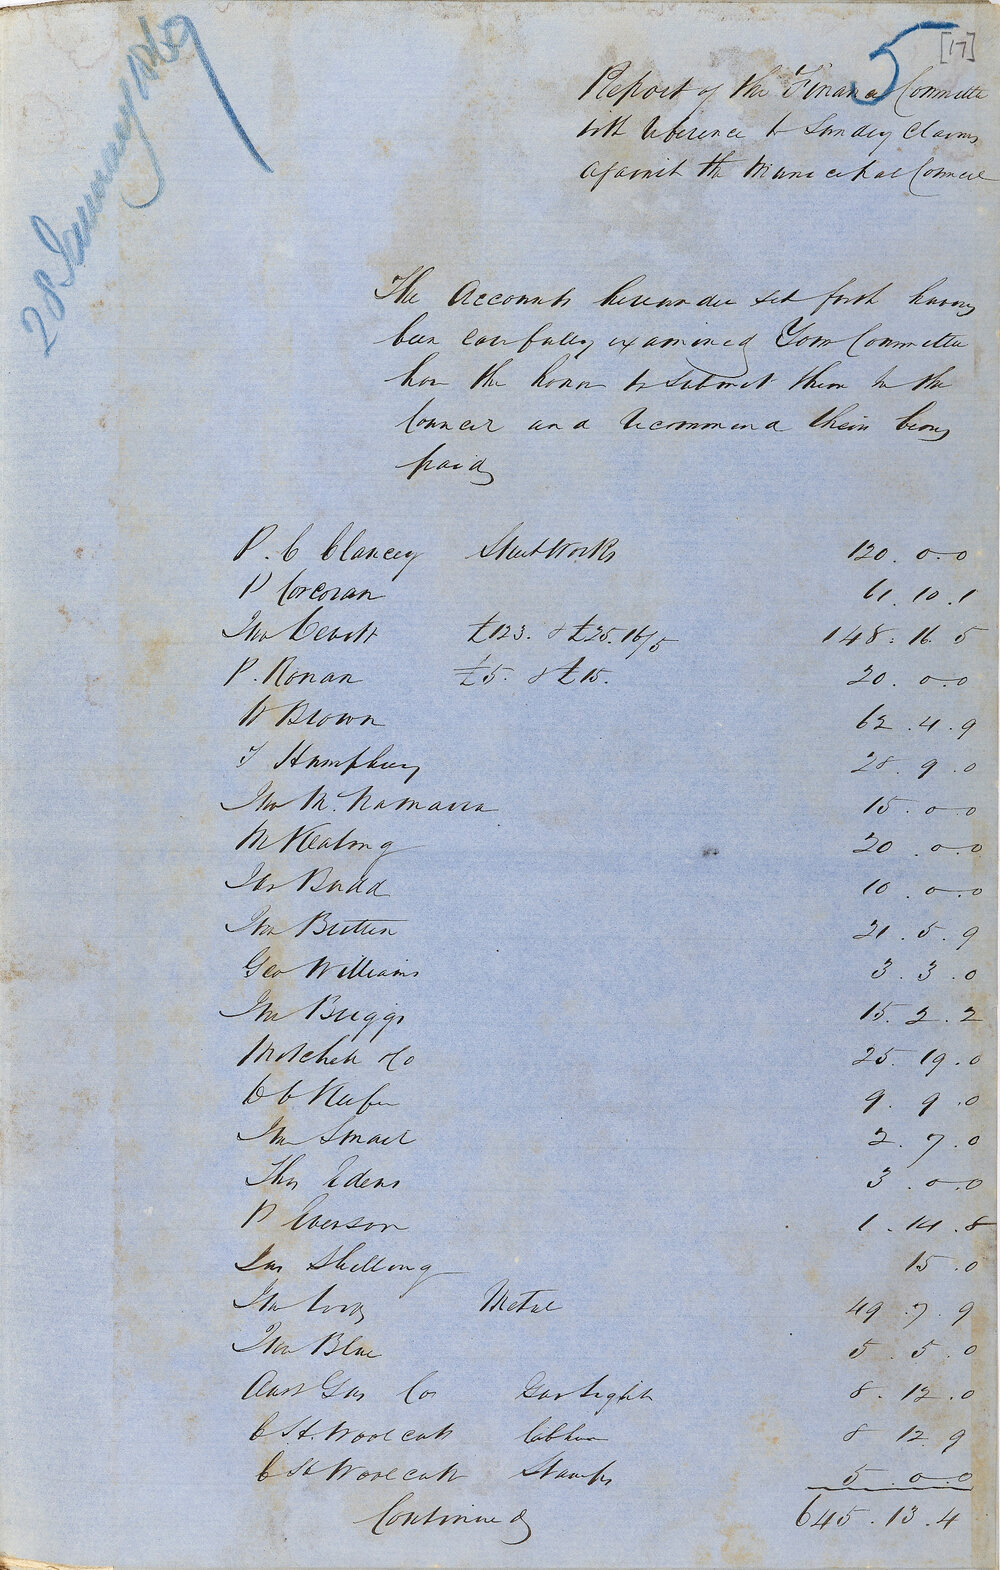 28 January 1869
5
[17]
Report of the Finance Committee
with reference to Sundry Claims
against the Municipal Council
The Accounts hereunder set forth having
been carefully examined Your Committee
have the honor to submit them to the
Council and recommend their being
paid
P. C Clancey Street Works 120. 0. 0
P Corcoran 61. 10. 1
Jno £123. & £25. 16/5 148. 16. 5
P. Ronan £5. & £15. 20. 0. 0
W Brown 62. 4. 9
T Humphrey 28. 9. 0
Jno McNamara 15. 0. 0
M Keating 20. 0. 0
Jas Budd 10. 0. 0
Jno Britten 21. 5. 9
Geo Williams 3. 3. 0
Jno Briggs 15. 2. 2
Mitchell & Co 25. 19. 0
9. 9. 0
Jno Small 2. 7. 0
Thos Edens 3. 0. 0
P Everson 1. 14. 8
Jas Skelling 15. 0
Jno Metal 49. 7. 9
Jno Blue 5. 5. 0
Aust Gas Co Gas Light 8. 12. 0
C St Woolcott 8 12. 9
C St Woolcott Stamps 5. 0. 0
Continued 645. 13. 4